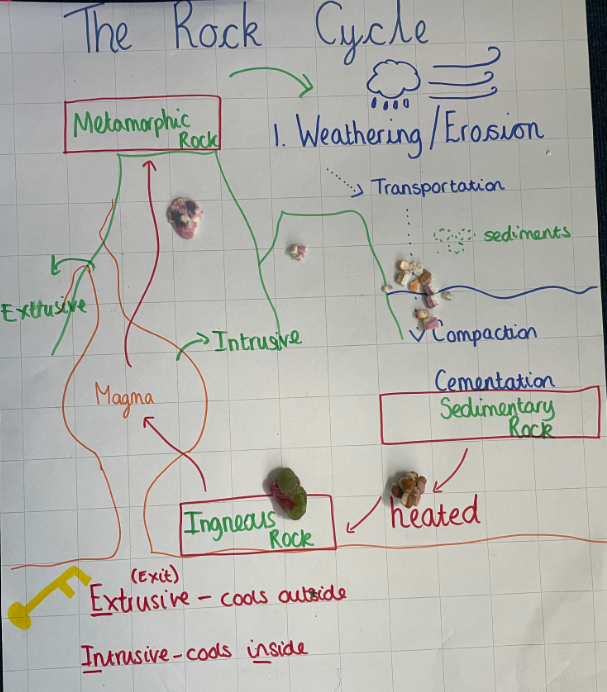 The Rock Cycle
Metamorphic
Rock
1. Weathering/Erosion
Transportation
sediments
Extrusive
Intrusive
Compaction
Magma
Cementation
Sedimentary
Rock
heated
Ingneous
Rock
(Exit)
Extrusive - cools outside
Intrusive - cools inside